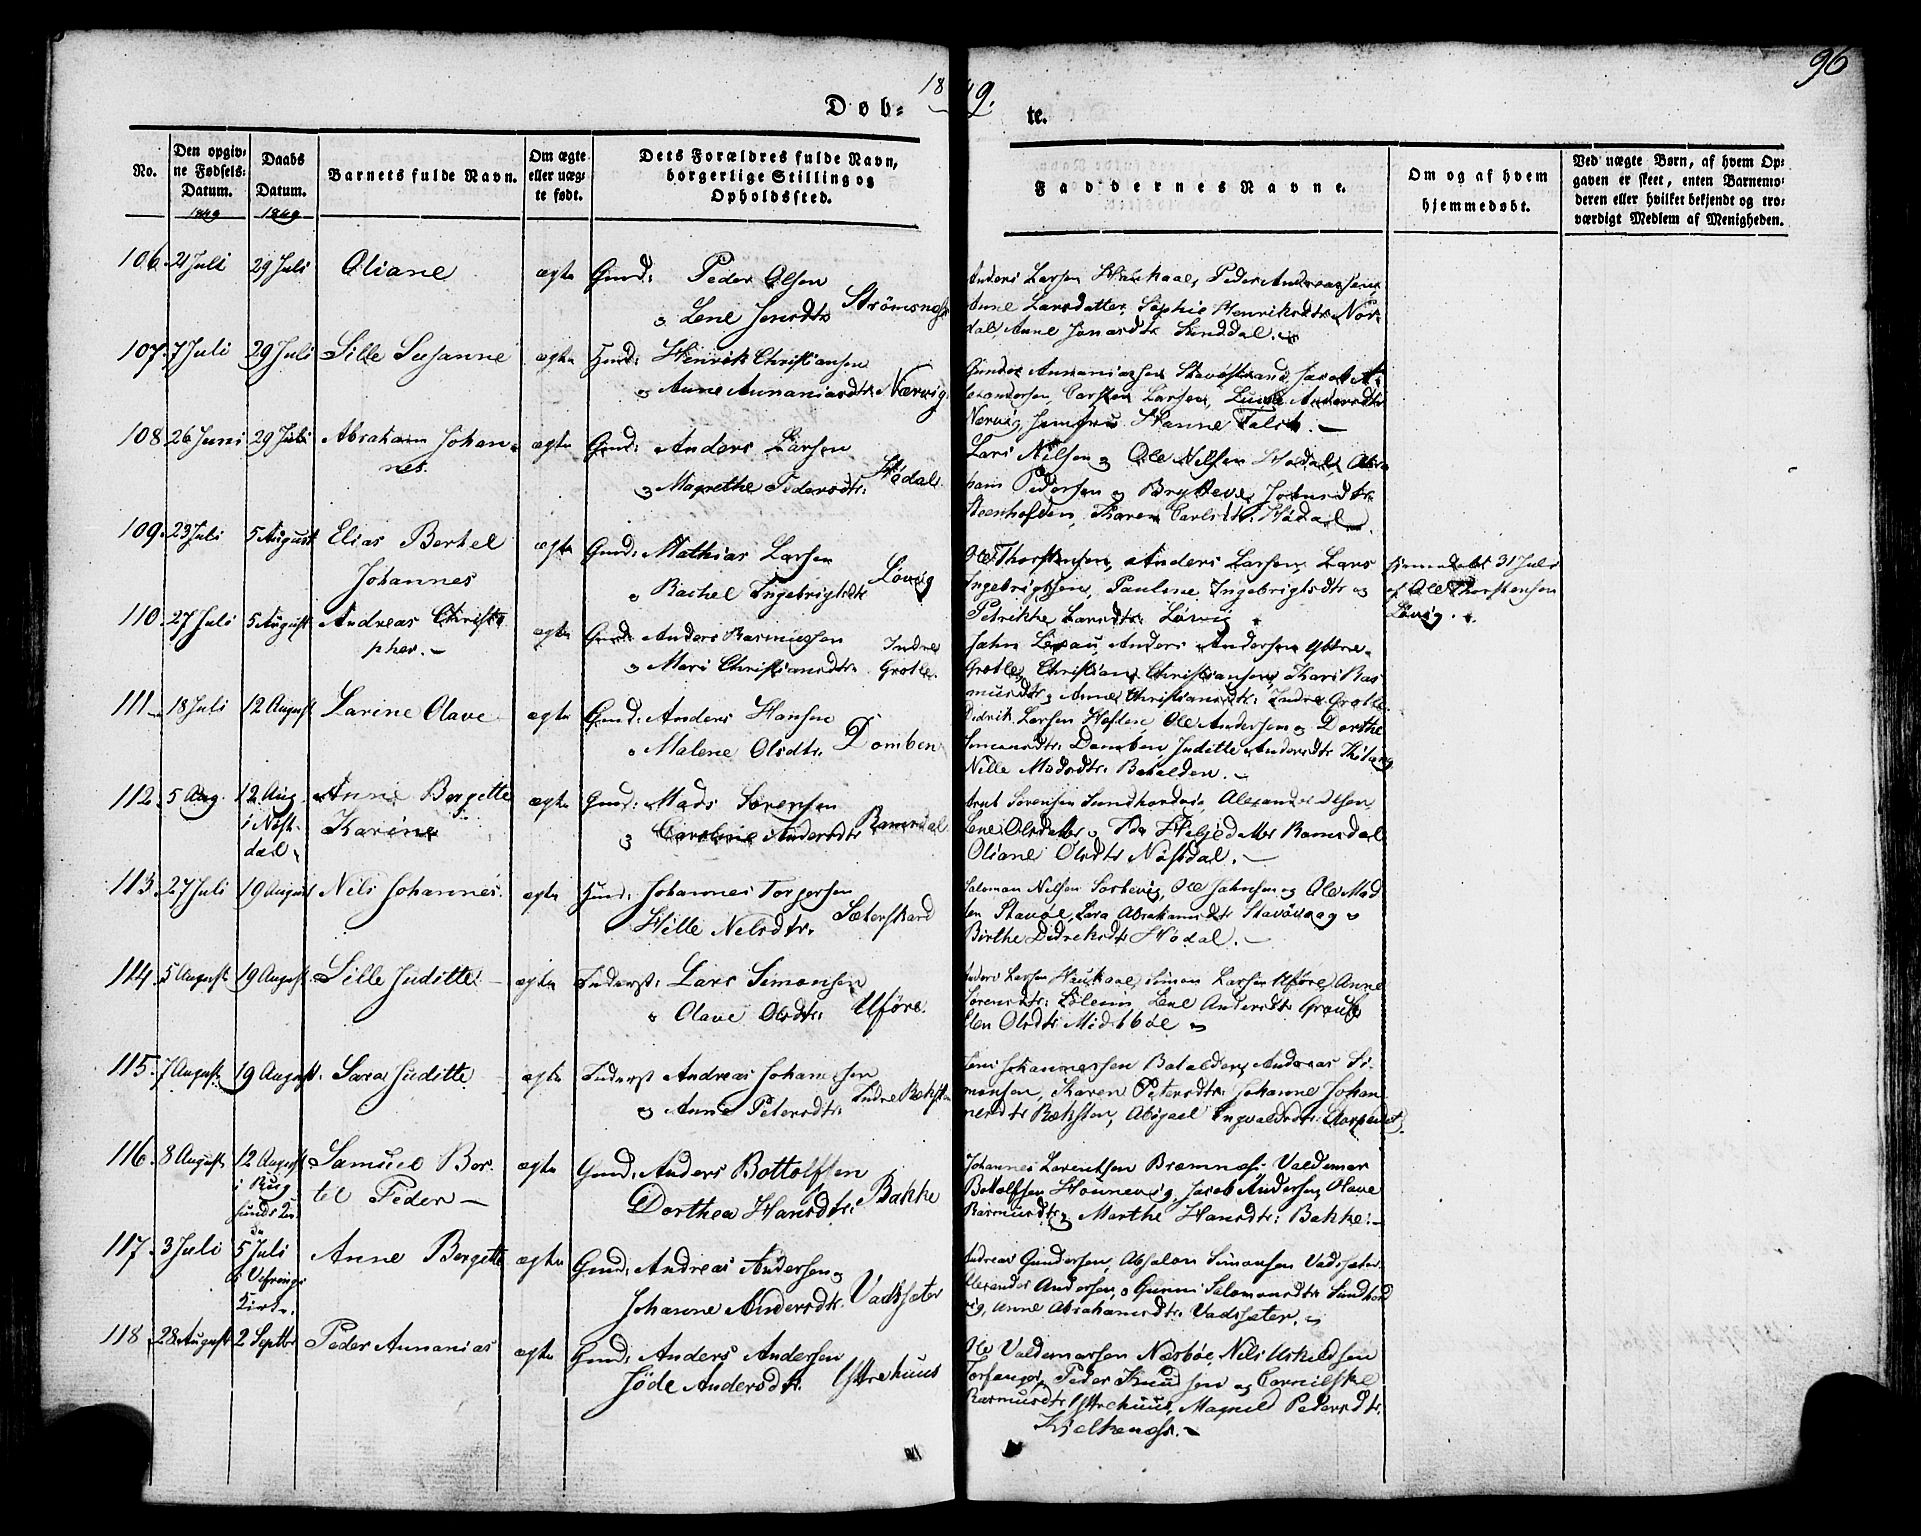 18 49.
96
Døb- te.
No.
Den opgiv-
ne Fødsels-
Datum.
1849
Daabs
Datum.
1849
Barnets fulde Navn.
Om ægte
eller uæg-
te født.
Dets Forældres fulde Navn,
borgerlige Stilling og
Opholdssted.
Faddernes Navne.
Om og af hvem
hjemmedøbt.
Ved uægte Børn, af hvem Op-
gaven er skeet, enten Barnemo-
deren eller hvilket bekjendt og tro-
værdigt Medlem af Menigheden.
106. 21 Juli 29 Juli Oliane ægte Gmd: Peder Olsen
o Lene Jensdtr Strømsnæs
Anders Larsen Haukaae, Peder Andreassen,
Anne Larsdatter, Sophie Henriksdtr Nor-
dal, Anne Jonasdtr Sunddal.
107. 7 Juli 29 Juli Sille Susanne ægte Huusmd: Henrik Christiansen
o Anne Annaniasdtr Nærvig
Gunder Annaniassen Stavøstrand, Jacob A-
lexandersen, Carsten Larsen, Andersdtr
Nærvig, Jomfru Hanne Falch. —
108 26 Juni 29 Juli Abraham Johan-
nes. ægte Gmd: Anders Larsen
o Magrethe Pedersdtr: Hødal
Lars Nilsen o Ole Nilsen Hødal, Abra
ham Pedersen o Brytteve Johnsdtr
Steenhofden, Karen Carlsdtr. Hødal.
109. 23 Juli 5 August Elias Bertel
Johannes ægte Gmd: Mathias Larsen
o Rachel Ingebrigtsdtr Løvig
Ole Thorstensen, Anders Larsen, Lars
Ingebrigtsen, Pauline Ingebrigtsdtr o
Petrikke Larsdtr: Løvig
Hjemmedøbt 31 Juli
af Ole Thorstensen
Løvig.
110. 27 Juli 5 August Andreas Christo
pher. — ægte Gmd: Anders Rasmussen
o Mari Christiansdtr. Indre
Grotle.
John Anders Andersen Yttre-
Grotle, Christian Christiansen, Kari Ras
musdtr, Anne Christiansdtr: Indre Grotle
111. 18 Juli 12 August Larine Olave ægte Gmd: Anders Hansen
o Malene Olsdtr. Domben
Didrik Larsen Hofden Ole Andersen o Dorthe
Simonsdtr: Domben, Juditte Andersdtr
Nille Madsdtr: Batalden. —
112. 5 Aug. 12 Aug
i Nøst-
dal. Anne Bergitte
Karine ægte Gmd: Mads Sørensen
o Caroline Andersdtr Ramsdal
Arnt Sørensen Alexander Olsen,
Lene Olsdatter, Helgedatter Ramsdal
Oliane Olsdtr Nøstdal. —
113. 27 Juli 19 August Nils Johannes. ægte Huusmd: Johannes Torgersen
Hille Nelsdtr. Sæterskard
Salomon Nilsen Sørbevig, Ole Johnsen o Ole Mad
sen Stavøe, Lara Abrahamsdtr Stavøvaag o
Birthe Didreksdtr Hødal. —
114. 5 August 19 August Sille Juditte — ægte Inderst: Lars Simonsen
o Olave Olsdtr: Uføre.
Anders Larsen Haukaae, Simon Larsen Uføre, Anne
Sørensdtr: Lene Andersdtr
Elen Olsdtr Midtbøe
115. 7 August 19 August. Sara Juditte ægte Inderst Andreas Johannesen
o Anne Petersdtr: Indre Rekst
Johannessen Batalden, Andreas Si-
monsen, Karen Petersdtr: Johanne Johan
nesdtr Reksten, Abigael Ingvaldsdtr: Starpenet.
116. 8 August 12 August
i Rug
sunds Kir
ke Samuel Ber-
til Peder — ægte Gmd: Anders Bottolfsen
Dorthea Hansdtr: Bakke
Johannes Lorentsen Bremnæs, Valdemar
Bottolfsen Hounevig, Jacob Andersen, Olave
Rasmusdtr, Marthe Hansdtr: Bakke. —
117. 3 Juli 5 Juli
i Vefrings
Kirke. Anne Bergitte ægte Gmd: Andreas Andersen o
Johanne Andersdtr. Vadsæter
Andreas Gundersen, Absalon Simonsen Vadsæter
Alexander Andersen, o Gunni Salomonsdtr Sundhord
vig, Anne Abrahamsdtr: Vadsæter.
118. 28 August 2 Septbr Peder Annanias ægte Gmd: Anders Andersen
Jøde Andersdtr. Yttrehuus
Ole Valdemarsen Næsbøe, Nils Askildsen
Torfanger, Peder Knudsen o Cornilske
Rasmusdtr Yttrehuus, Magnild Pedersdtr.
Kjelkenæs. —